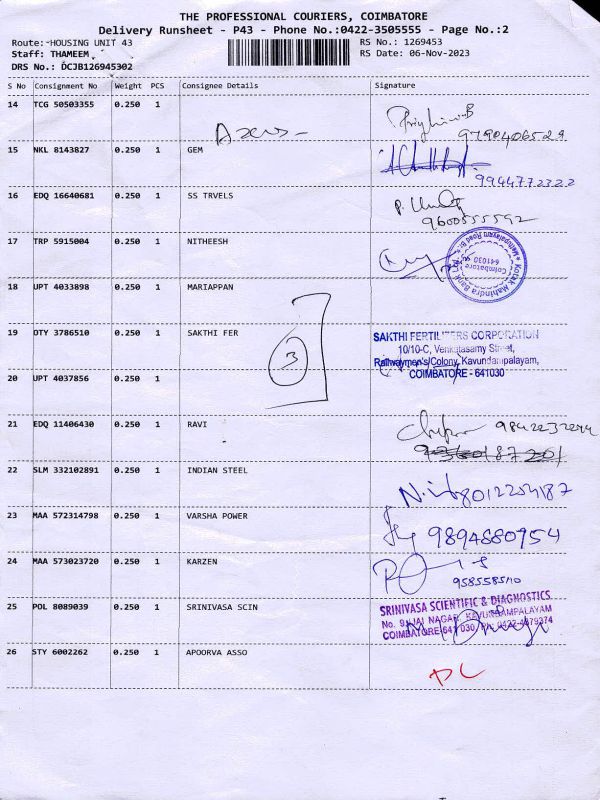 THE PROFESSIONAL COURIERS, COIMBATORE
Delivery Runsheet - P43 - Phone No.:0422-3505555 - Page No.:2
Route: HOUSING UNIT 43 RS No.: 1269453
Staff: THAMEEM RS Date: 06-Nov-2023
DRS No.: DCJB126945302
S No Consignment No Weight PCS Consignee Details Signature
14 TCG 50503355 0.250 1
9790406529
15 NKL 8143827 0.250 1 GEM
9944772322
16 EDQ 16640681 0.250 1 SS TRVELS
9600555592
17 TRP 5915004 0.250 1 NITHEESH
Kotak Mahindra Bank
Coimbatore
641030
18 UPT 4033898 0.250 1 MARIAPPAN
19 OTY 3786510 0.250 1 SAKTHI FER 3
SAKTHI FERTILIZERS CORPORATION
10/10-C, Venkatasamy Street,
Railwaymen's Colony, Kavundampalayam,
COIMBATORE - 641030
20 UPT 4037856 0.250 1
21 EDQ 11406430 0.250 1 RAVI
22 SLM 332102891 0.250 1 INDIAN STEEL
8012254187
23 MAA 572314798 0.250 1 VARSHA POWER
9894880954
24 MAA 573023720 0.250 1 KARZEN
9585585110
25 POL 8089039 0.250 1 SRINIVASA SCIN
SRINIVASA SCIENTIFIC & DIAGNOSTICS
No. 9, JAI NAGAR, KAVUNDAMPALAYAM
COIMBATORE-641 030. Ph: 0422-4979374
26 STY 6002262 0.250 1 APOORVA ASSO
DL